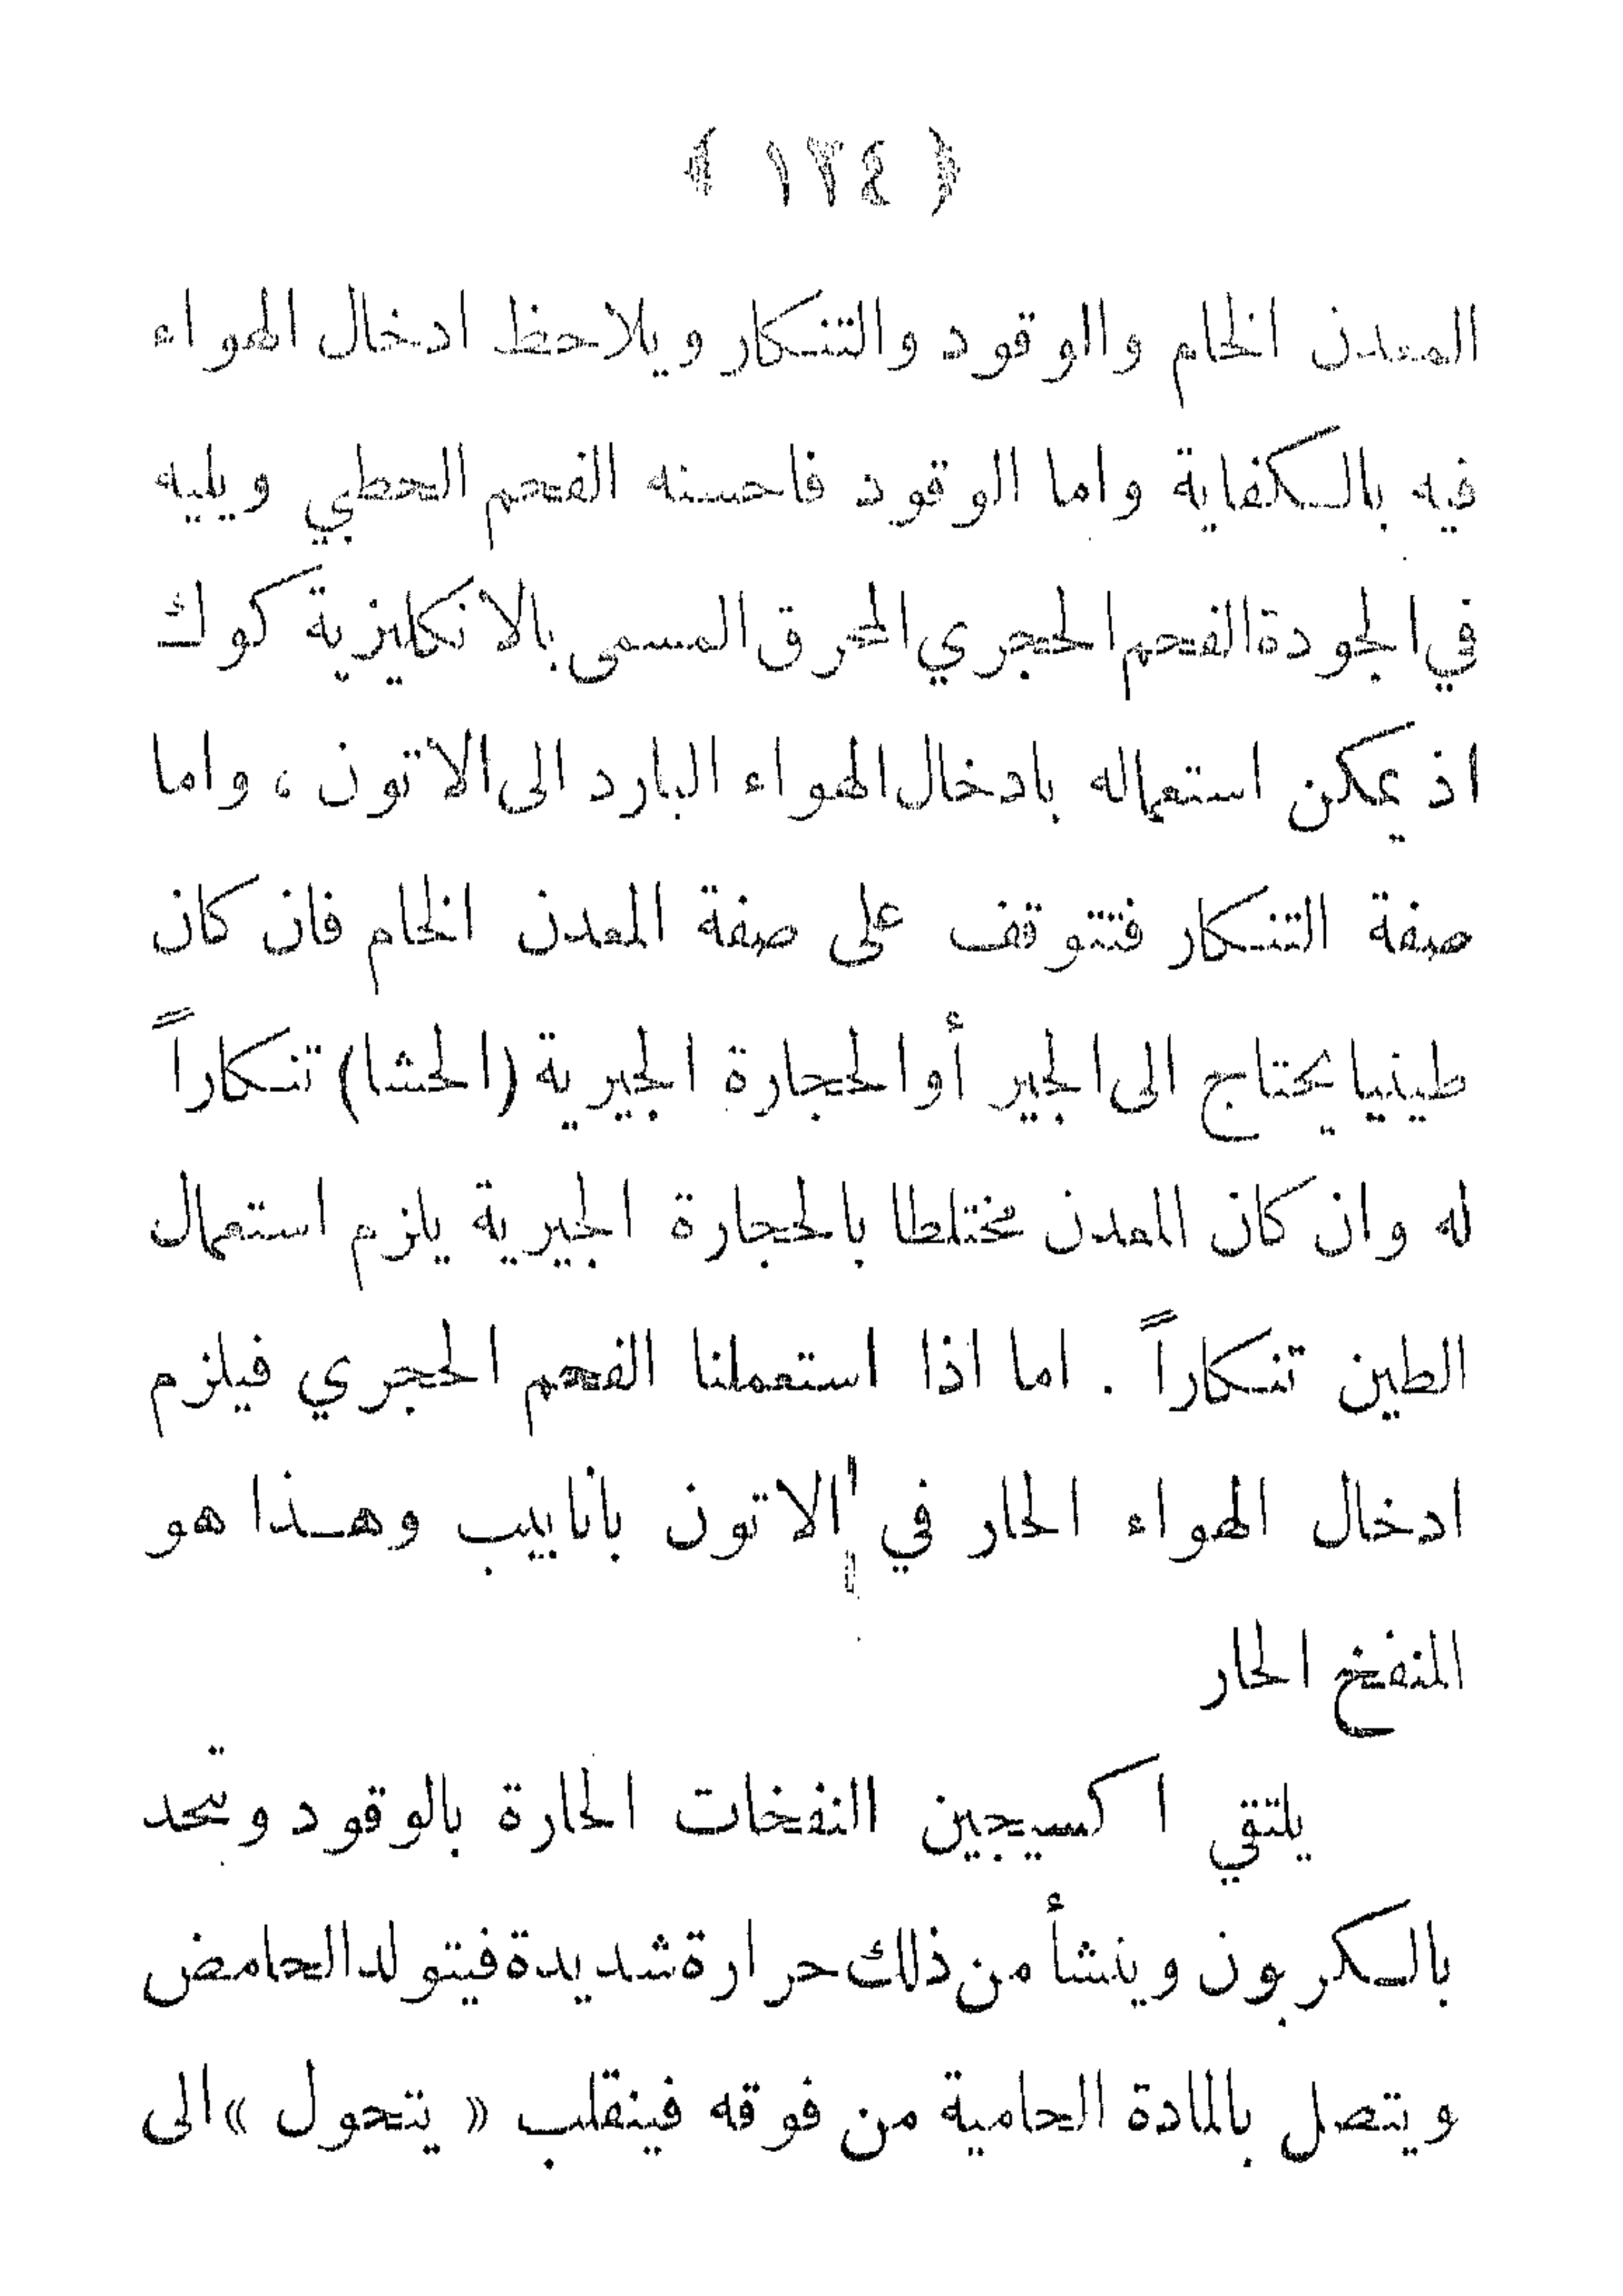 ﴿ ١٢٤ ﴾
المعدن الخام والوقود والتنكار ويلاحظ ادخال الهواء
فيه بالكفاية واما الوقود فاحسنه الفحم الحطبي ويليه
في الجودة الفحم الحجري المحرق المسمى بالانكليزية كوك
اذ يمكن استعماله بادخال الهواء البارد الى الاتون ، واما
صفة التنكار فتتوقف على صفة المعدن الخام فان كان
طينيا يحتاج الى الجير أو الحجارة الجيرية (الحشا) تنكاراً
له وان كان المعدن مختلطا بالحجارة الجيرية يلزم استعمال
الطين تنكاراً . اما اذا استعملنا الفحم الحجري فيلزم
ادخال الهواء الحار في الاتون بانابيب وهــذا هو
المنفخ الحار
يلتقي اكسيجين النفخات الحارة بالوقود وتحد
بالكربون وينشأ من ذلك حرارة شديدة فيتولد الحامض
ويتصل بالمادة الحامية من فوقه فينقلب « يتحول » الى